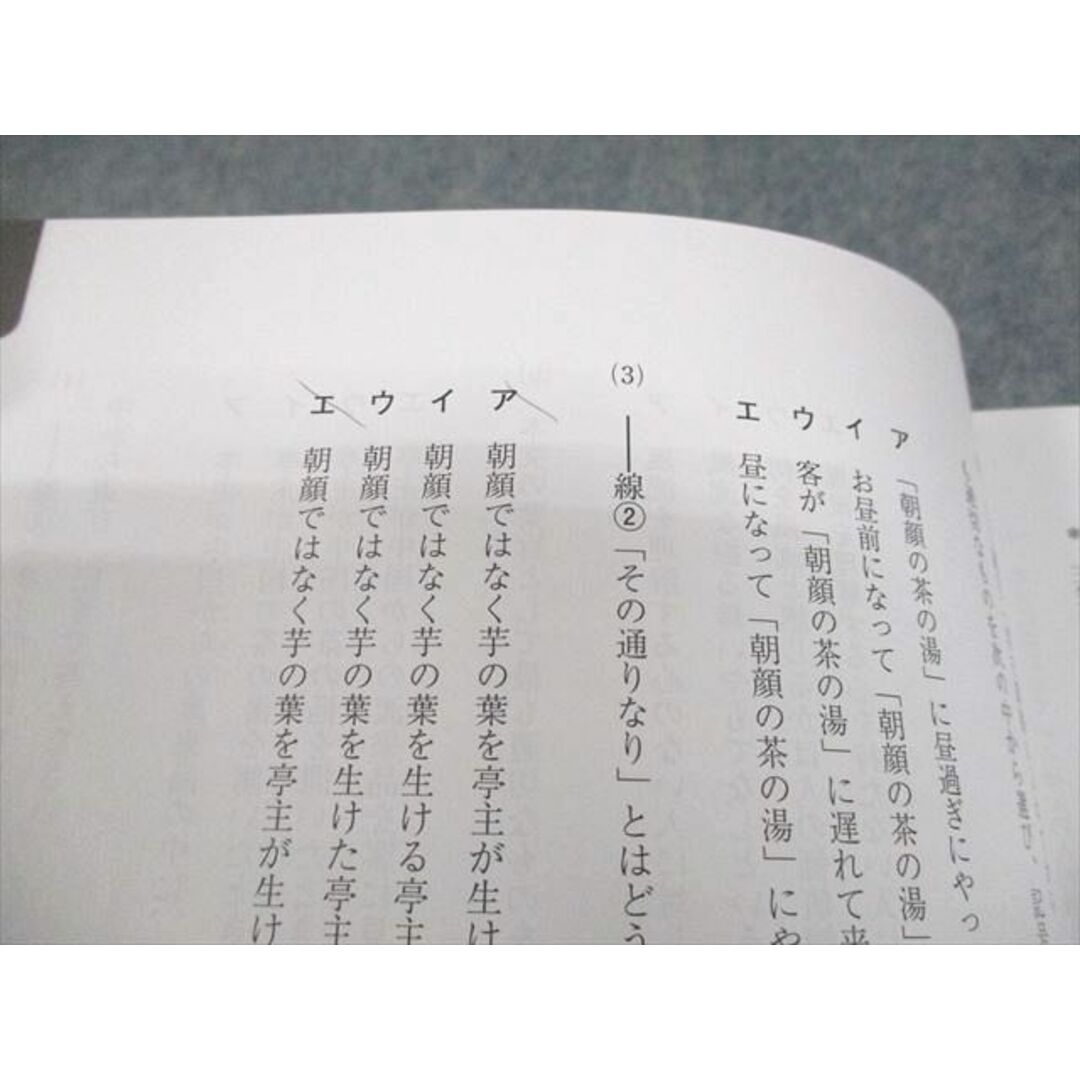 ア 「朝顔の茶の湯」に昼過ぎにやっ
イ お昼前になって「朝顔の茶の湯」
ウ 客が「朝顔の茶の湯」に遅れて来
エ 昼になって「朝顔の茶の湯」にや
(3) ――線②「その通りなり」とはどう
ア 朝顔ではなく芋の葉を亭主が生け
イ 朝顔ではなく芋の葉を生ける亭主
ウ 朝顔ではなく芋の葉を生けた亭主
エ 朝顔ではなく芋の葉を亭主が生け